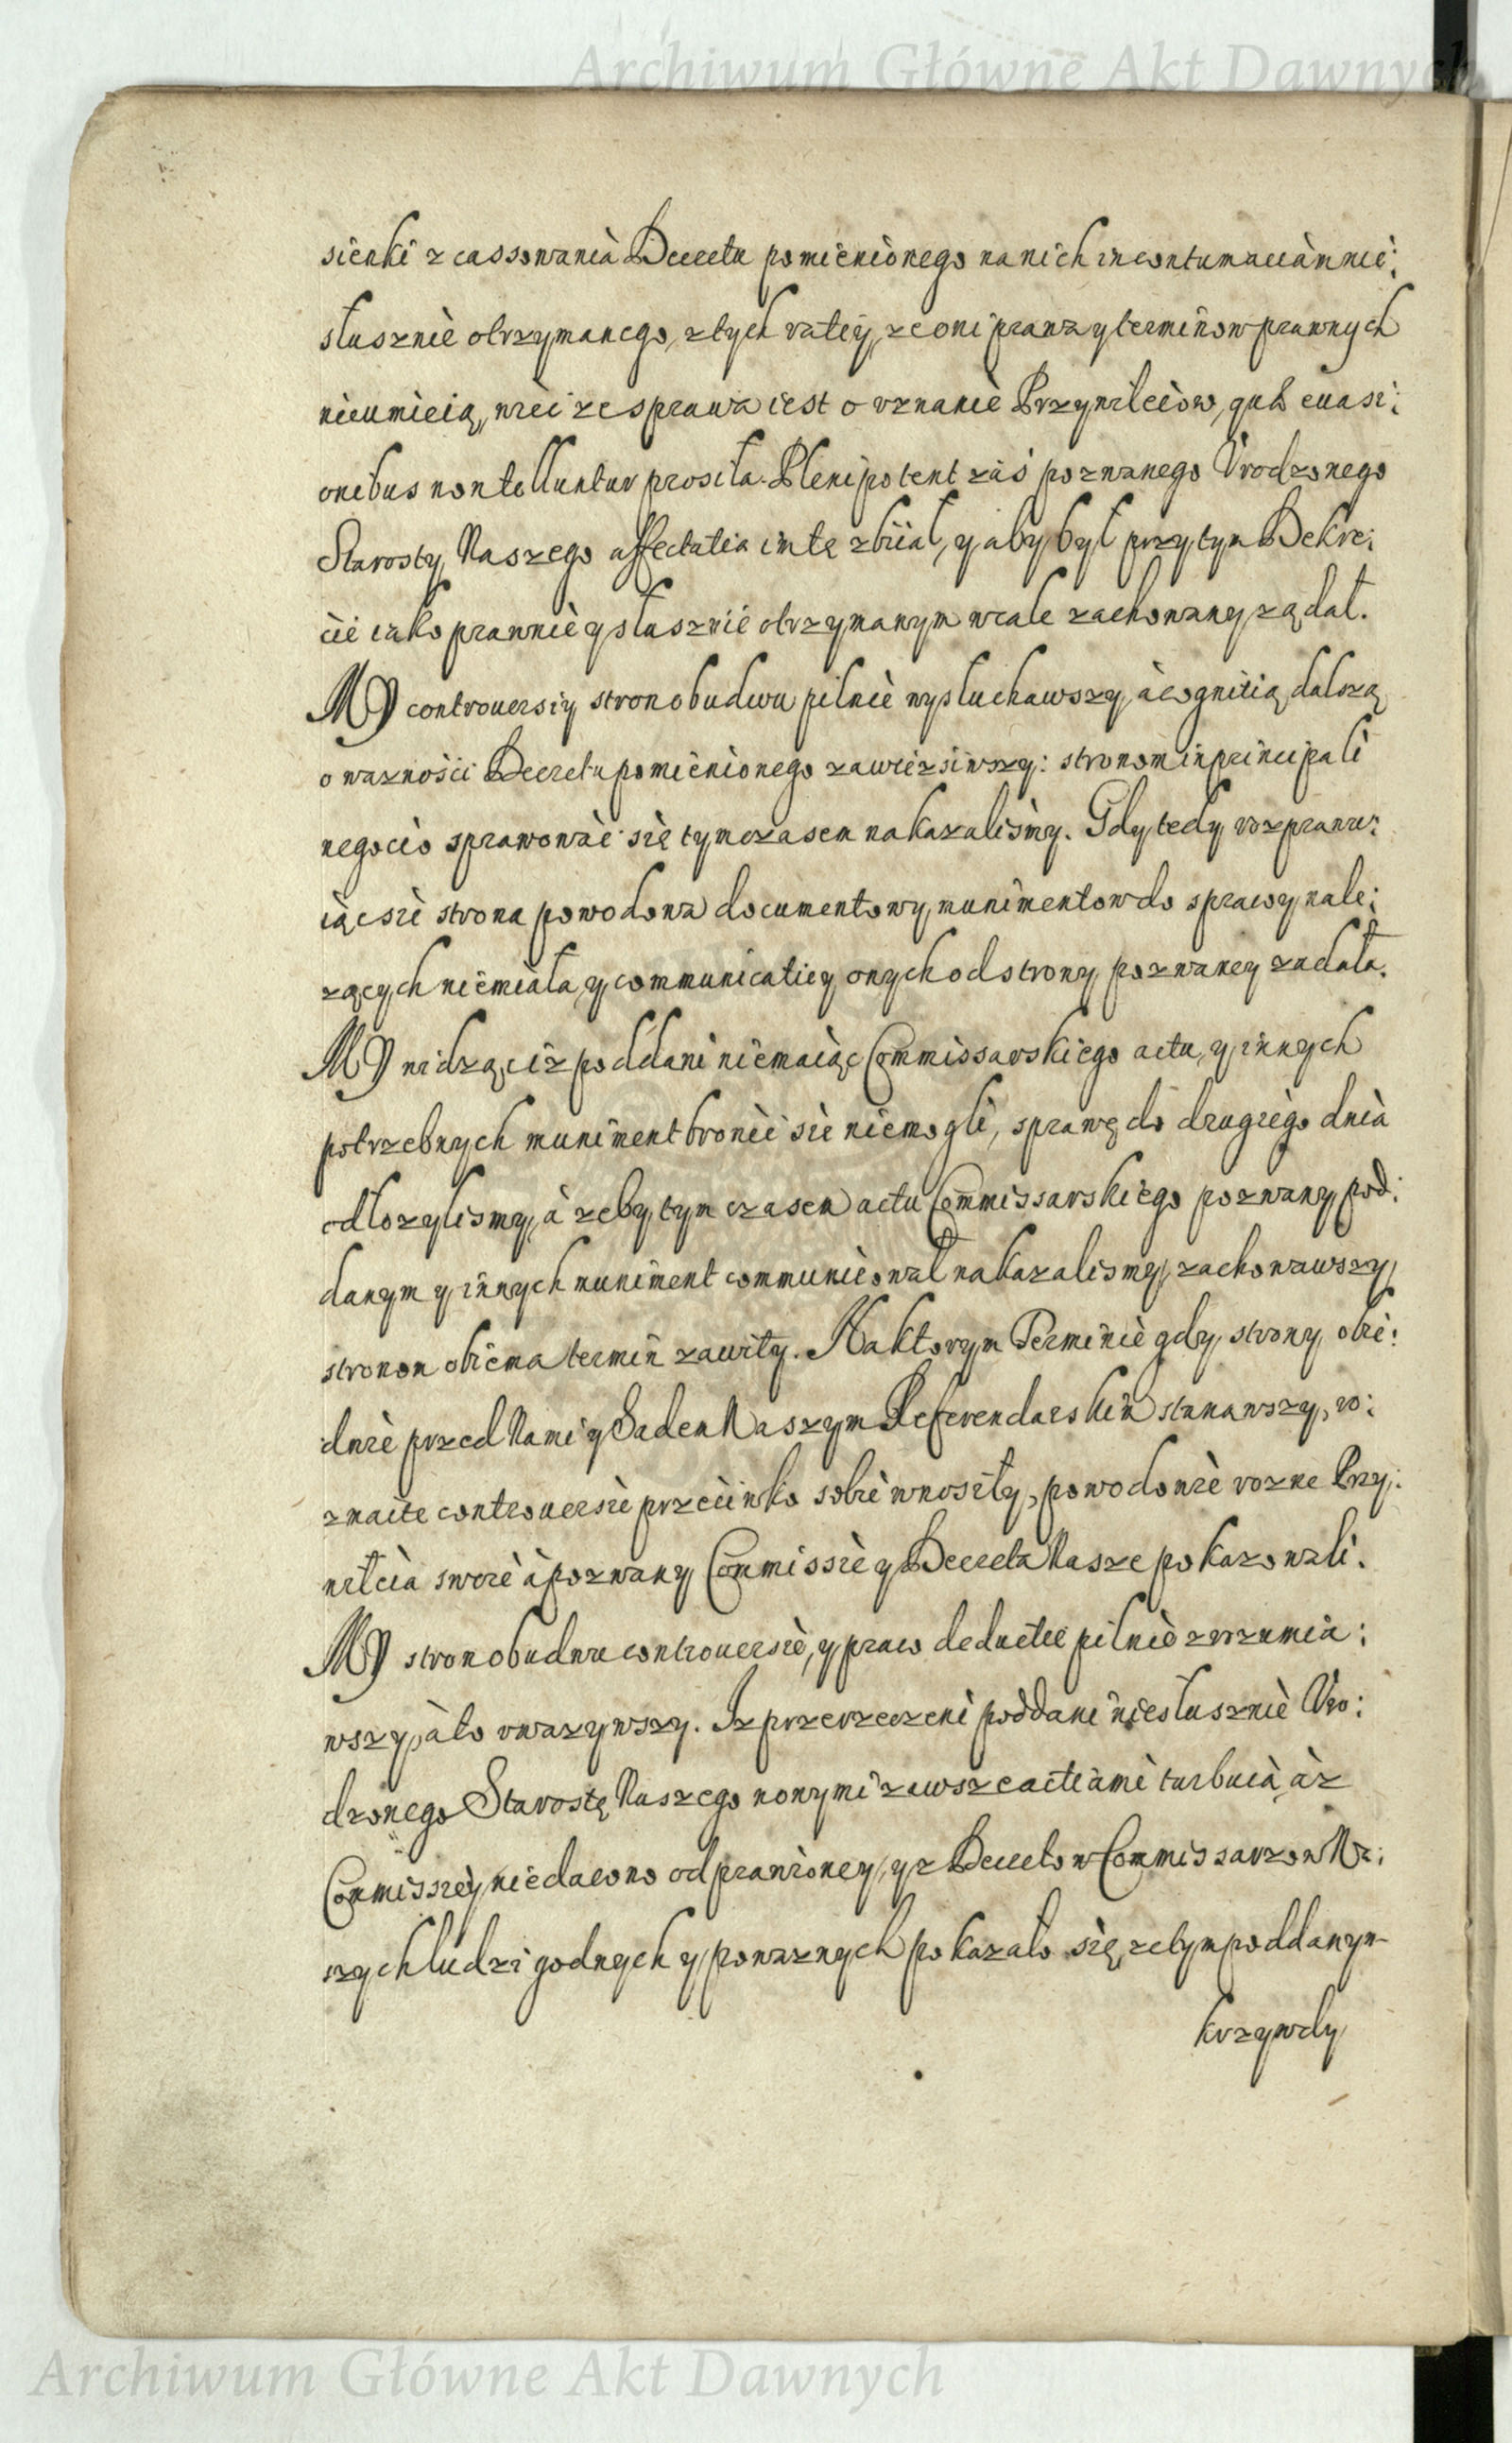 Archiwum Główne Akt Dawnych
sienki z cassowania Decretu pomienionego na nich in contumaciam nie:
słusznie otrzymanego, z tych ratiy, ze oni prawa y terminow prawnych
nieumieią, wiec ze sprawa iest o vznanie Przywileiow, quæ euasi:
onibus non tolluntur prosiła. Plenipotent zaś pozwanego Vrodzonego
Starosty Naszego affectatia intę zbiiał, y aby był przy tym Dekre:
cie iako prawnie y słusznie otrzymanym wcale zachowany ządał.
MY controuersiy stron obudwu pilnie wysłuchawszy, à cognitią dalszą
o wazności Decretu pomienionego zawiesiwszy: stronom in principali
negocio sprawować się tymczasem nakazalismy. Gdy tedy rozprawu:
iąc sie strona powodowa documentow y munimentow do sprawy nale:
zących niemiała, y communicatiey onych od strony pozwaney ządała.
MY widząc iz poddani niemaiąc Commissarskiego actu, y innych
potrzebnych muniment bronić sie niemogli, sprawę do drugiego dnia
odłozylismy, à zeby tym czasem actu Commissarskiego pozwany pod:
danym y innych muniment communicował nakazalismy, zachowawszy
stronom obiema termin zawity. Na ktorym Terminie gdy strony obie:
dwie przed Nami y Sadem Naszym Referendarskim stanąwszy, ro:
zmaite controuersie przeciwko sobie wnosiły, powodowie rozne Przy:
wileia swoie à pozwany Commissie y Decreta Nasze pokazowali.
MY stron obudwu controuersie, y praw deductie pilnie zrozumia:
wszy, à to vwazywszy. Iz przerzeczeni poddani niesłusznie Vro:
dzonego Starostę Naszego nowymi zawsze actiami turbuià, àz
Commissiey niedawno odprawioney, y z Decretow Commissarzow Na:
szych ludzi godnych y powaznych pokazało się, ze tym poddanym
krzywdy
Archiwum Główne Akt Dawnych